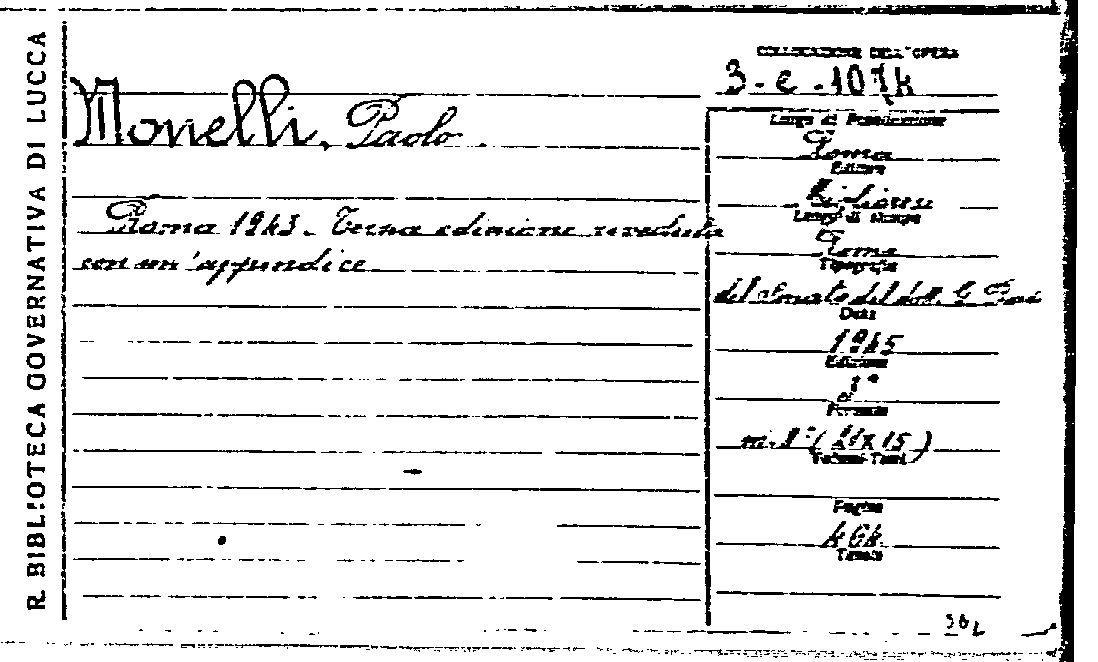 R. BIBLIOTECA GOVERNATIVA DI LUCCA
COLLOCAZIONE DELL'OPERA
3-e-1074
Monelli, Paolo.
Roma 1943 - Terza edizione riveduta
con un'appendice
Luogo di Pubblicazione
Roma
Editore
Migliaresi
Luogo di stampa
Roma
Tipografia
del Senato del dott. G.
Data
1945
Edizione
3ª
Formato
m. 8° (21x15)
Volumi-Tomi
Pagine
464
Tavole